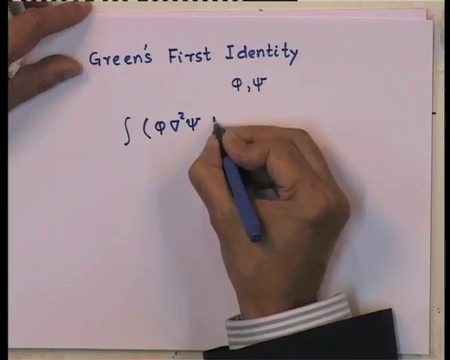 Green's First Identity
φ, ψ
∫ (φ∇²ψ